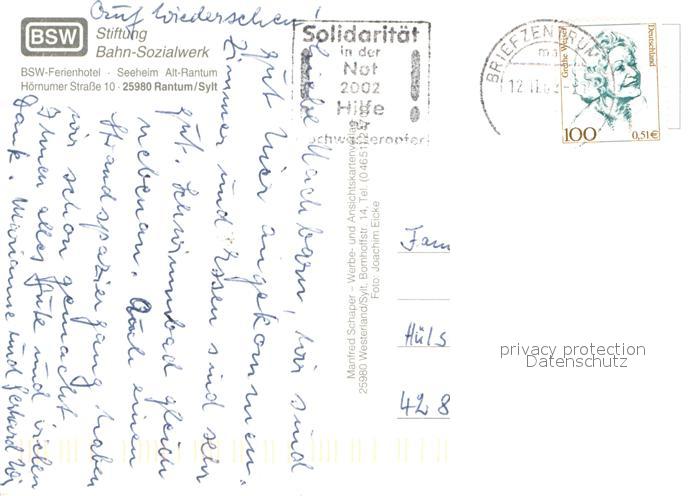 Auf Wiedersehen!
BSW
Stiftung
Bahn-Sozialwerk
BSW-Ferienhotel · Seeheim Alt-Rantum
Hörnumer Straße 10 · 25980 Rantum/Sylt
Liebe Nachbarn, wir sind
gut hier angekommen.
Zimmer und Essen sind sehr
gut. Schwimmbad gleich
nebenan. Auch einen
Strandspaziergang haben
wir schon gemacht.
Ihnen alles Gute und vielen
Dank. Marianne und Gerhard
Solidarität
in der
Not
2002
Hilfe
für
Hochwasseropfer!
Manfred Schaper – Werbe- und Ansichtskartenverlag
25980 Westerland/Sylt, Bomhoffstr. 14, Tel. (04651)
Foto: Joachim Eicke
BRIEFZENTRUM
12.11.02
Grethe Weiser
Deutschland
100
0,51€
Fam
Hüls
428
privacy protection
Datenschutz